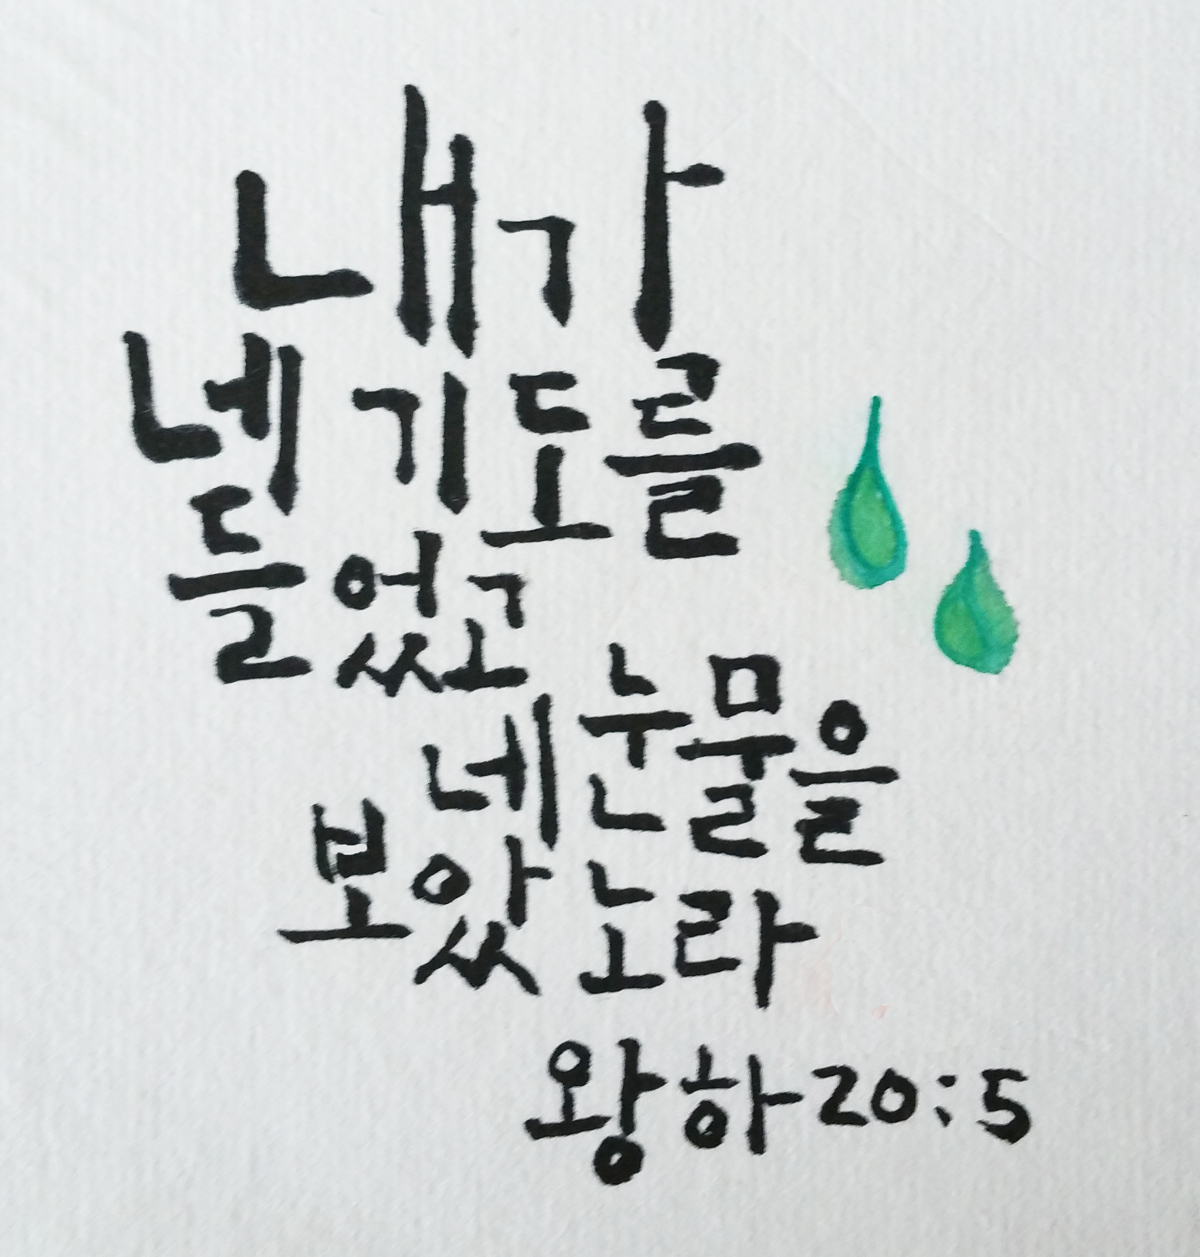 내가
네 기도를
들었고
네 눈물을
보았노라
왕하 20:5